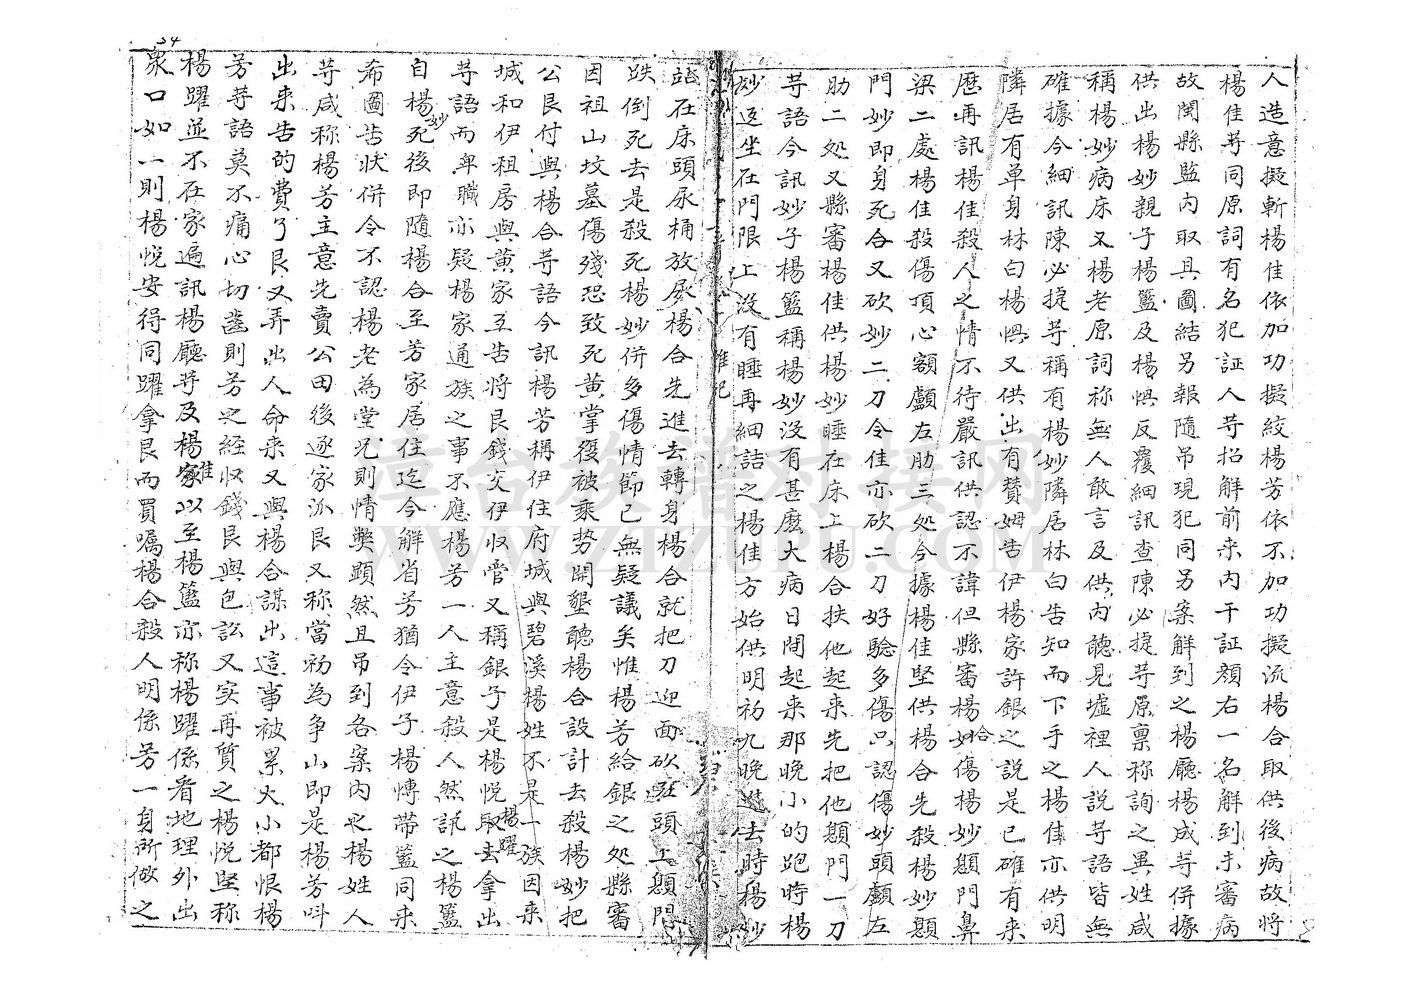 人造意擬斬楊佳依加功擬絞楊芳依不加功擬流楊合取供後病故將
楊佳等同原詞有名犯証人等招解前来內干証顏右一名解到未審病
故閩縣監內取具圖結另報隨吊現犯同另案解到之楊廳楊成等併據
供出楊妙親子楊籃及楊惧反覆細訊查陳必捷等原禀称詢之異姓咸
稱楊妙病床又楊老原詞称無人敢言及供內聽見墟裡人說等語皆無
確據今細訊陳必捷等稱有楊妙隣居林白告知而下手之楊佳亦供明
隣居有單身林白楊惧又供出有賛姆告伊楊家許銀之說是已確有来
歷再訊楊佳殺人之情不待嚴訊供認不諱但縣審楊合傷楊妙顖門鼻
梁二處楊佳殺傷頂心額顱左肋三処今據楊佳堅供楊合先殺楊妙顖
門妙即身死合又砍妙二刀令佳亦砍二刀好驗多傷只認傷妙頭顱左
肋二処又縣審楊佳供楊妙睡在床上楊合扶他起来先把他顖門一刀
等語今訊妙子楊籃稱楊妙沒有甚麽大病日間起来那晚小的跑時楊
妙逐坐在門限上沒有睡再細詰之楊佳方始供明初九晚進去時楊妙
站在床頭尿桶放尿楊合先進去轉身楊合就把刀迎面砍在頭上顖門
跌倒死去是殺死楊妙併多傷情節已無疑議矣惟楊芳給銀之処縣審
因祖山坟墓傷殘恐致死黄掌復被乘势開墾聽楊合設計去殺楊妙把
公艮付與楊合等語今訊楊芳稱伊住府城與碧溪楊姓不是一族因来
城和伊租房與黄家互告將艮錢交伊收管又稱銀子是楊悅楊躍取去拿出
等語而卑職亦疑楊家通族之事不應楊芳一人主意殺人然訊之楊籃
自楊妙死後即隨楊合至芳家居住迄今解省芳猶令伊子楊愽带籃同来
希圖告狀併令不認楊老為堂兄則情弊顕然且吊到各案內之楊姓人
等咸称楊芳主意先賣公田後逐家派艮又称當初為争山即是楊芳叫
出来告的費了艮又弄出人命来又與楊合謀出這事被累大小都恨楊
芳等語莫不痛心切齒則芳之經収錢艮與包訟又实再質之楊悅堅称
楊躍並不在家遍訊楊廳等及楊家以至楊籃亦称楊躍係看地理外出
眾口如一則楊悅安得同躍拿艮而買嘱楊合殺人明係芳一身所做之
漳台族谱对接网
WWW.ZTZUPU.COM